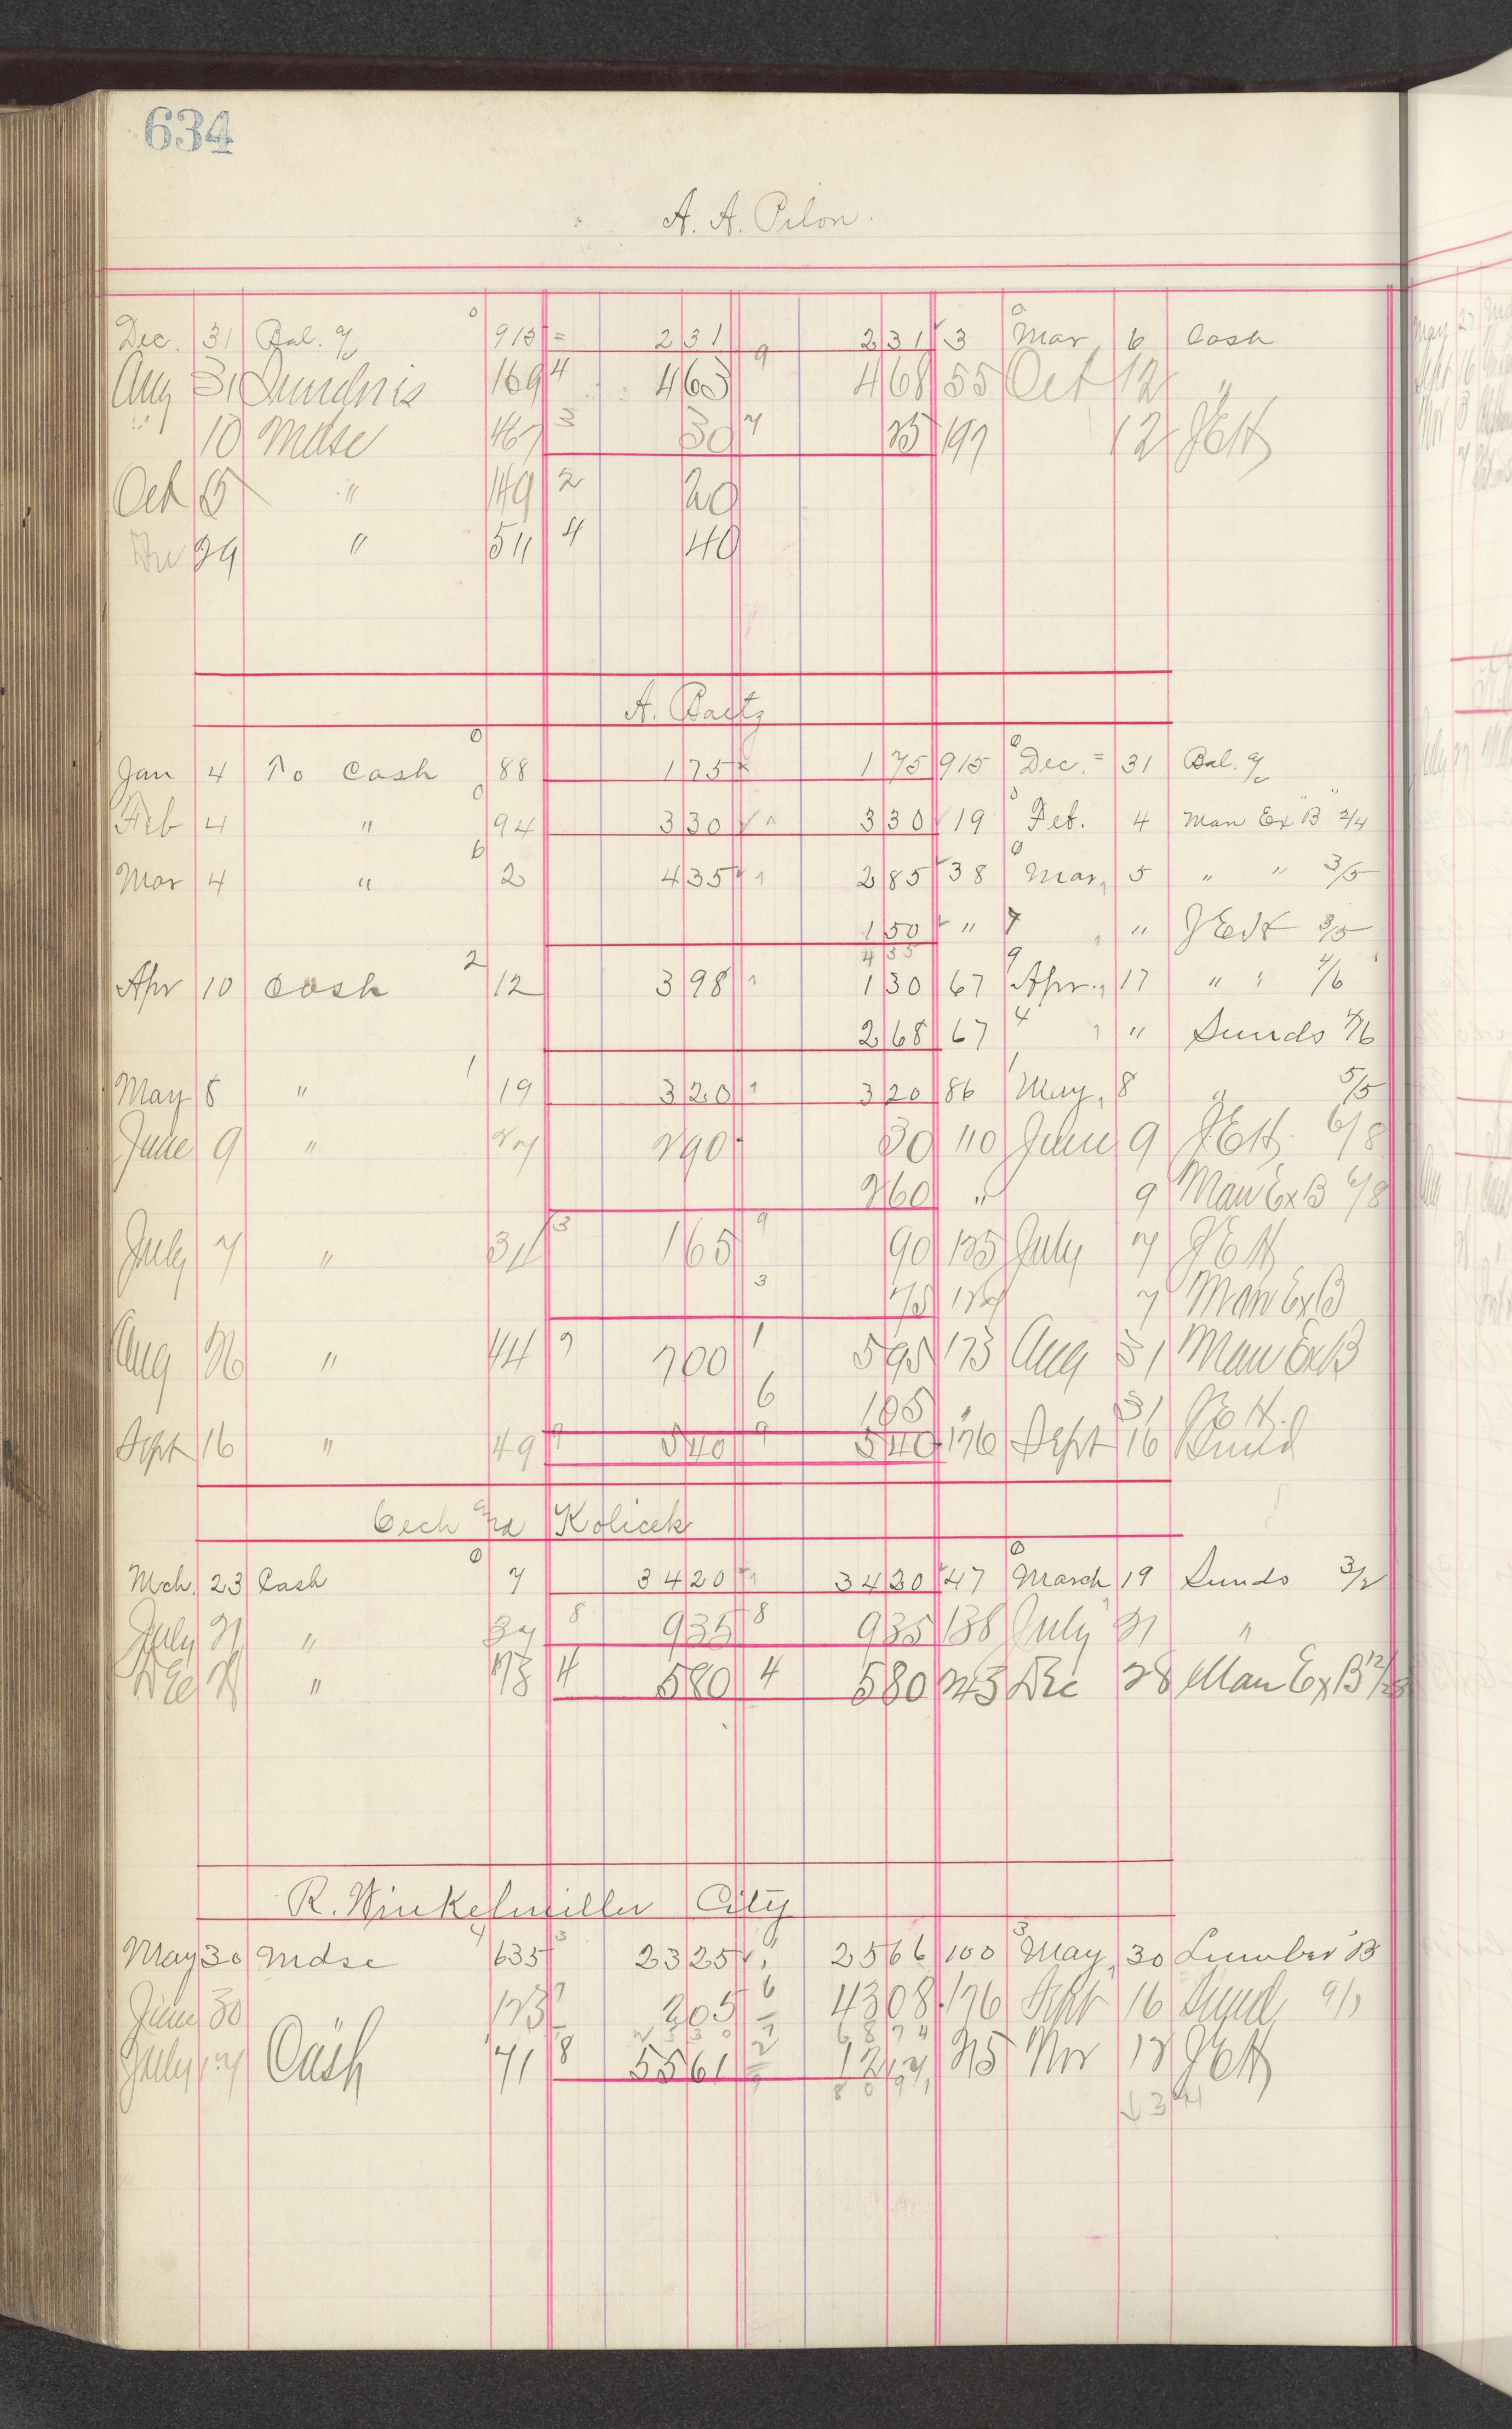 634
A. A. Pilon.
Dec. 31 Bal. 0 915 = 2 31 2 31 3 0 Mar 6 Cash
Aug 31 Sundries 169 4 4 63 9 4 68 55 Oct 12 "
" 10 Mdse 467 3 30 7 25 197 12 JEH
Oct 5 " 149 2 20
29 " 511 4 40
A. Baetz
Jan 4 To Cash 0 88 1 75 1 75 915 0 Dec. = 31 Bal.
Feb 4 " 0 94 3 30 3 30 19 Feb. 4 Man Ex B 2/4
Mar 4 " 6 2 4 35 2 85 38 0 Mar, 5 " " 3/5
1 50 " 7 " JEH 3/5
4 35
Apr 10 Cash 2 12 3 98 1 30 67 9 Apr., 17 " " 4/6
2 68 67 4 " Sunds 4/6
May 8 " 1 19 3 20 3 20 86 1 May, 8 " 5/5
June 9 " 27 2 90 30 110 June 9 JEH 6/8
2 60 " 9 Man Ex B 6/8
July 7 " 31 3 1 65 9 90 125 July 7 JEH
3 75 7 Man Ex B
Aug 26 " 44 7 00 1 5 95 173 Aug 31 Man Ex B
6 1 05 " 31 JEH
Sept 16 " 49 5 40 9 5 40 176 Sept 16 Sund
Cech Kolicek
Mch. 23 Cash 0 7 34 20 34 20 47 0 March 19 Sunds 3/2
July 21 " 37 8 9 35 8 9 35 138 July 21 "
Dec 28 " 78 4 5 80 4 5 80 243 Dec 28 Man Ex B 12/28
R. Winkelmiller City
May 30 Mdse 635 3 23 25 25 66 100 3 May, 30 Lumber B
June 30 " 173 2 05 6 43 08 176 Sept 16 Sund 9/1
25 30 68 74
July 17 Cash 71 8 55 61 2 12 17 215 Nov 12 JEH
80 91